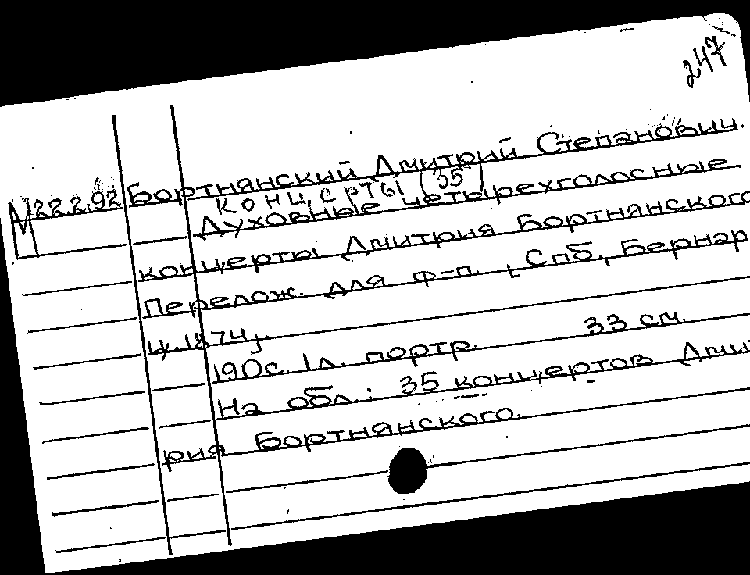 247
М22.2.92 Бортнянский Дмитрий Степанович.
концерты (35)
Духовные четырехголосные
концерты Дмитрия Бортнянского
Перелож. для ф-п. , Спб., Бернар
ц. 1874г.
190с. 1л. портр. 33 см.
На обл.: 35 концертов Дми
рия Бортнянского.